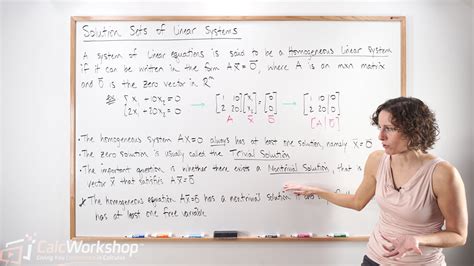 Solution Sets of Linear Systems
A system of linear equations is said to be a Homogeneous Linear System
if it can be written in the form Ax̄ = 0̄, where A is an mxn matrix
and 0̄ is the zero vector in ℝᵐ
x + 10x₂ = 0
2x + 20x₂ = 0
→ [1 10; 2 20][x₁; x₂] = [0; 0] → [1 10 0; 2 20 0]
A x̄ 0̄ [A | 0̄]
• The homogeneous system Ax̄ = 0̄ always has at least one solution, namely x̄ = 0̄
• The zero solution is usually called the Trivial Solution
• The important question is whether there exists a Nontrivial Solution, that is
vector x̄ that satisfies Ax̄ = 0̄
The homogeneous equation Ax̄ = 0̄ has a nontrivial solution
has at least one free variable
CalcWorkshop